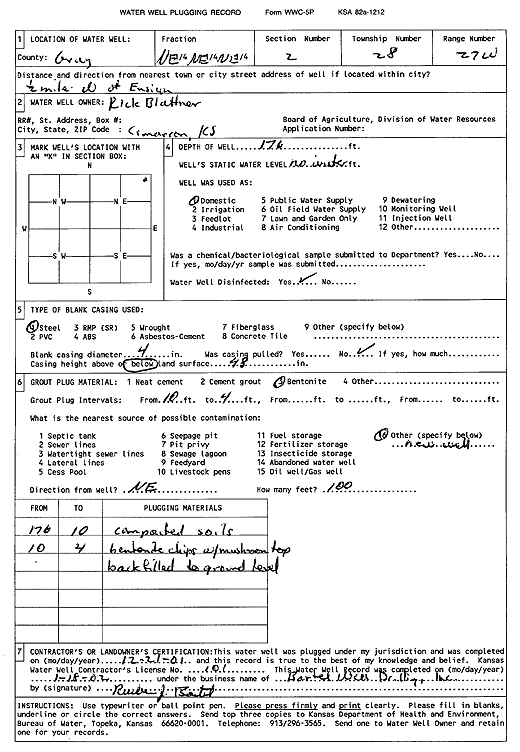 WATER WELL PLUGGING RECORD Form WWC-5P KSA 82a-1212
1 LOCATION OF WELL: Fraction Section Number Township Number Range Number
County: Gray NE¼ NE¼ NE¼ 2 28 27W
Distance and direction from nearest town or city street address of well if located within city?
½ mile N of Ensign
2 WATER WELL OWNER: Rick Blattner
RR#, St. Address, Box #: Board of Agriculture, Division of Water Resources
City, State, ZIP Code : Cimarron, KS Application Number:
3 MARK WELL'S LOCATION WITH AN "X" IN SECTION BOX:
N
N W N E
W E
S W S E
S
4 DEPTH OF WELL.....176.....ft.
WELL'S STATIC WATER LEVEL no water ft.
WELL WAS USED AS:
1 Domestic 5 Public Water Supply 9 Dewatering
2 Irrigation 6 Oil Field Water Supply 10 Monitoring Well
3 Feedlot 7 Lawn and Garden Only 11 Injection Well
4 Industrial 8 Air Conditioning 12 Other..........
Was a chemical/bacteriological sample submitted to Department? Yes....No....
If yes, mo/day/yr sample was submitted....................
Water Well Disinfected: Yes.✓.. No......
5 TYPE OF BLANK CASING USED:
1 Steel 3 RMP (SR) 5 Wrought 7 Fiberglass 9 Other (specify below)
2 PVC 4 ABS 6 Asbestos-Cement 8 Concrete Tile ....................
Blank casing diameter....4......in. Was casing pulled? Yes...... No.✓.. If yes, how much........
Casing height above or below land surface....48..........in.
6 GROUT PLUG MATERIAL: 1 Neat cement 2 Cement grout 3 Bentonite 4 Other....................
Grout Plug Intervals: From.10..ft. to..4..ft., From...... ft. to ......ft., From...... to ......ft.
What is the nearest source of possible contamination:
1 Septic tank 6 Seepage pit 11 Fuel storage 16 Other (specify below)
2 Sewer lines 7 Pit privy 12 Fertilizer storage ...new well....
3 Watertight sewer lines 8 Sewage lagoon 13 Insecticide storage
4 Lateral lines 9 Feedyard 14 Abandoned water well
5 Cess Pool 10 Livestock pens 15 Oil well/Gas well
Direction from well? ..NE............. How many feet? .100...........
FROM TO PLUGGING MATERIALS
176 10 compacted soils
10 4 bentonite chips w/mushroom top
backfilled to ground level
7 CONTRACTOR'S OR LANDOWNER'S CERTIFICATION: This water well was plugged under my jurisdiction and was completed
on (mo/day/year)....12-21-01.... and this record is true to the best of my knowledge and belief. Kansas
Water Well Contractor's License No. ..101.......... This Water Well Record was completed on (mo/day/year)
....1-18-02...... under the business name of ..Bartel Well Drilling, Inc...
by (signature) Reuben J. Bartel
INSTRUCTIONS: Use typewriter or ball point pen. Please press firmly and print clearly. Please fill in blanks,
underline or circle the correct answers. Send top three copies to Kansas Department of Health and Environment,
Bureau of Water, Topeka, Kansas 66620-0001. Telephone: 913/296-3565. Send one to Water Well Owner and retain
one for your records.